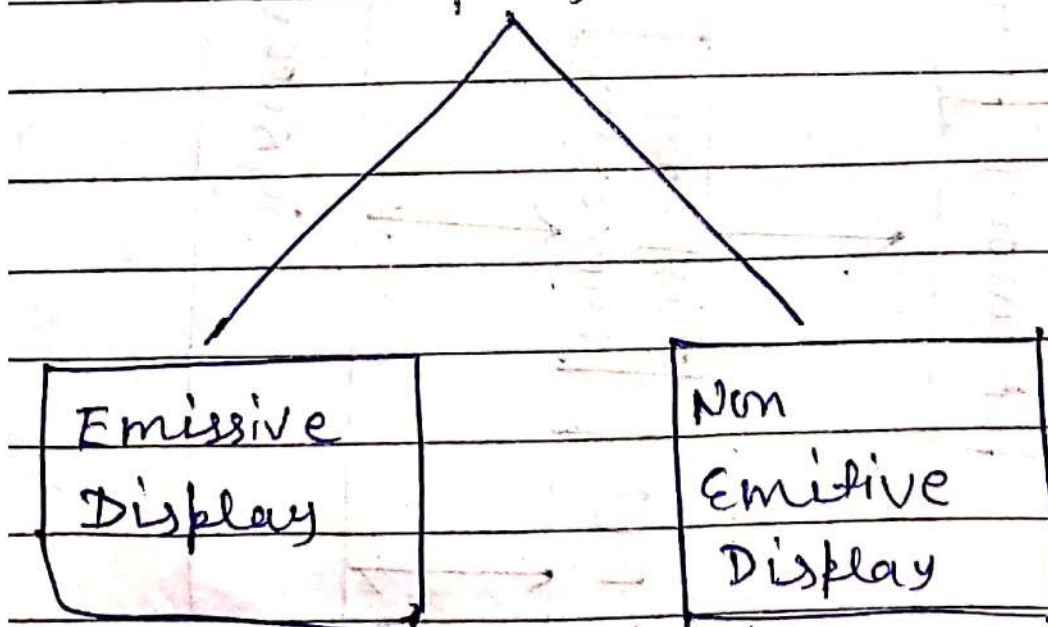 Emissive
Display
Non
Emitive
Display